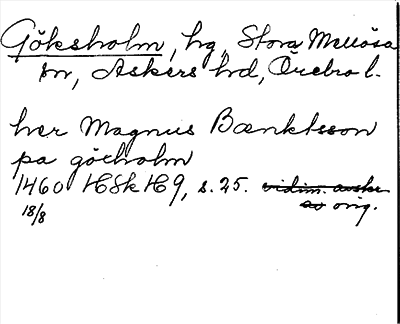 Göksholm, hg, Stora Mellösa
sn, Askers hd, Örebro l.
her Magnus Bænktsson
pa göcholm
1460 HSkH 9, s. 25. vidim. avskr.
18/8 av orig.